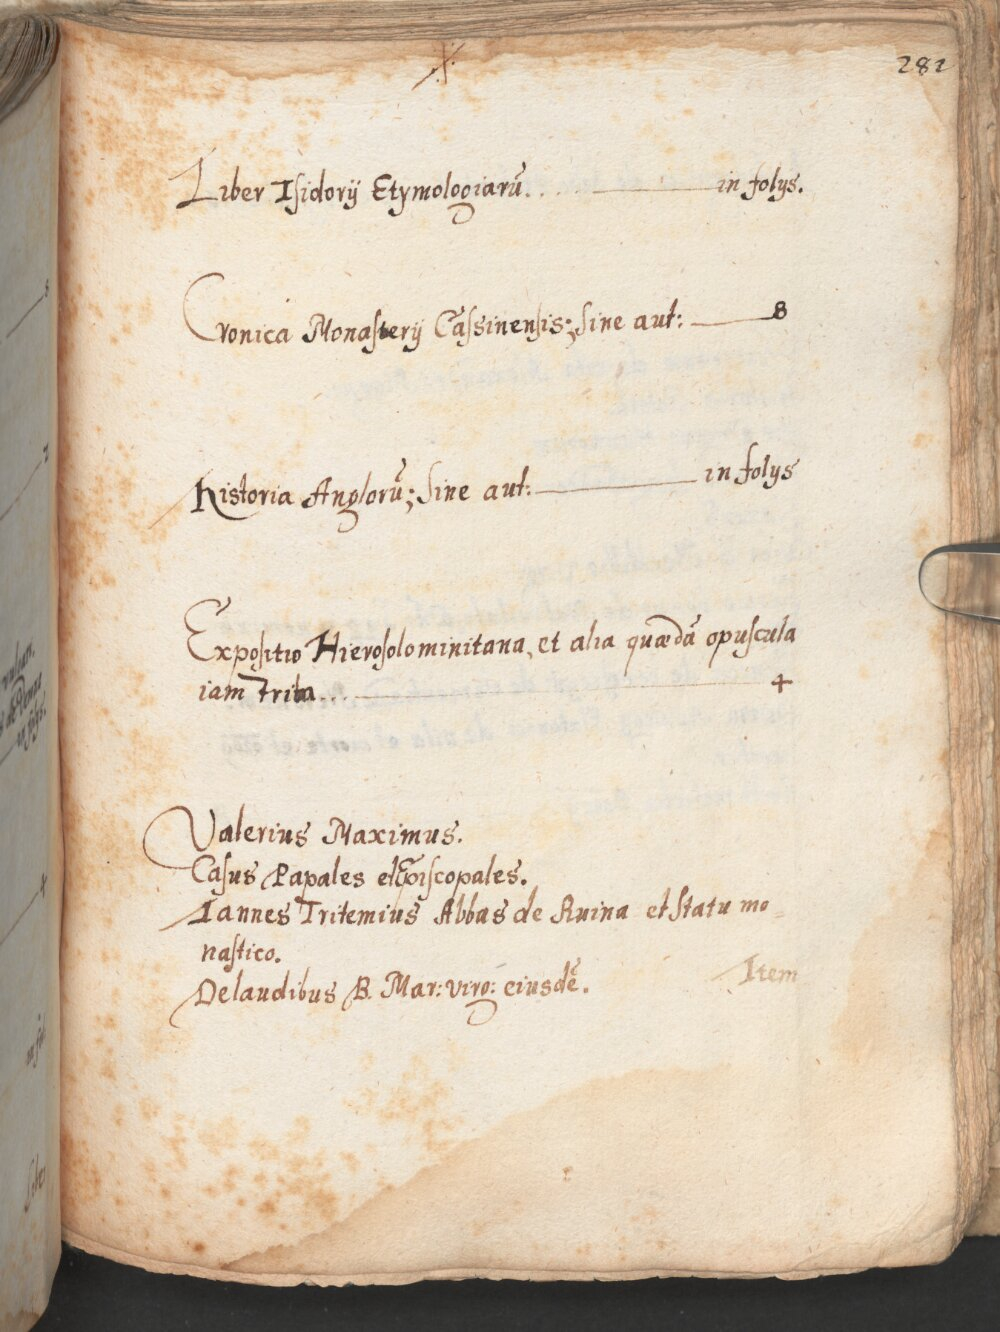 X
281
Liber Isidorij Etymologiarũ. . . in folijs.
Cronica Monasterij Cassinensis; sine aut: 8
Historia Anglorũ; sine aut: in folijs
Expositio Hierosolominitana, et alia quædã opuscula
iam trita. . . 4
Valerius Maximus.
Casus Papales et Episcopales.
Iannes Tritemius Abbas de Ruina et statu mo-
nastico.
De laudibus B. Mar: virg: eiusdẽ.
Item